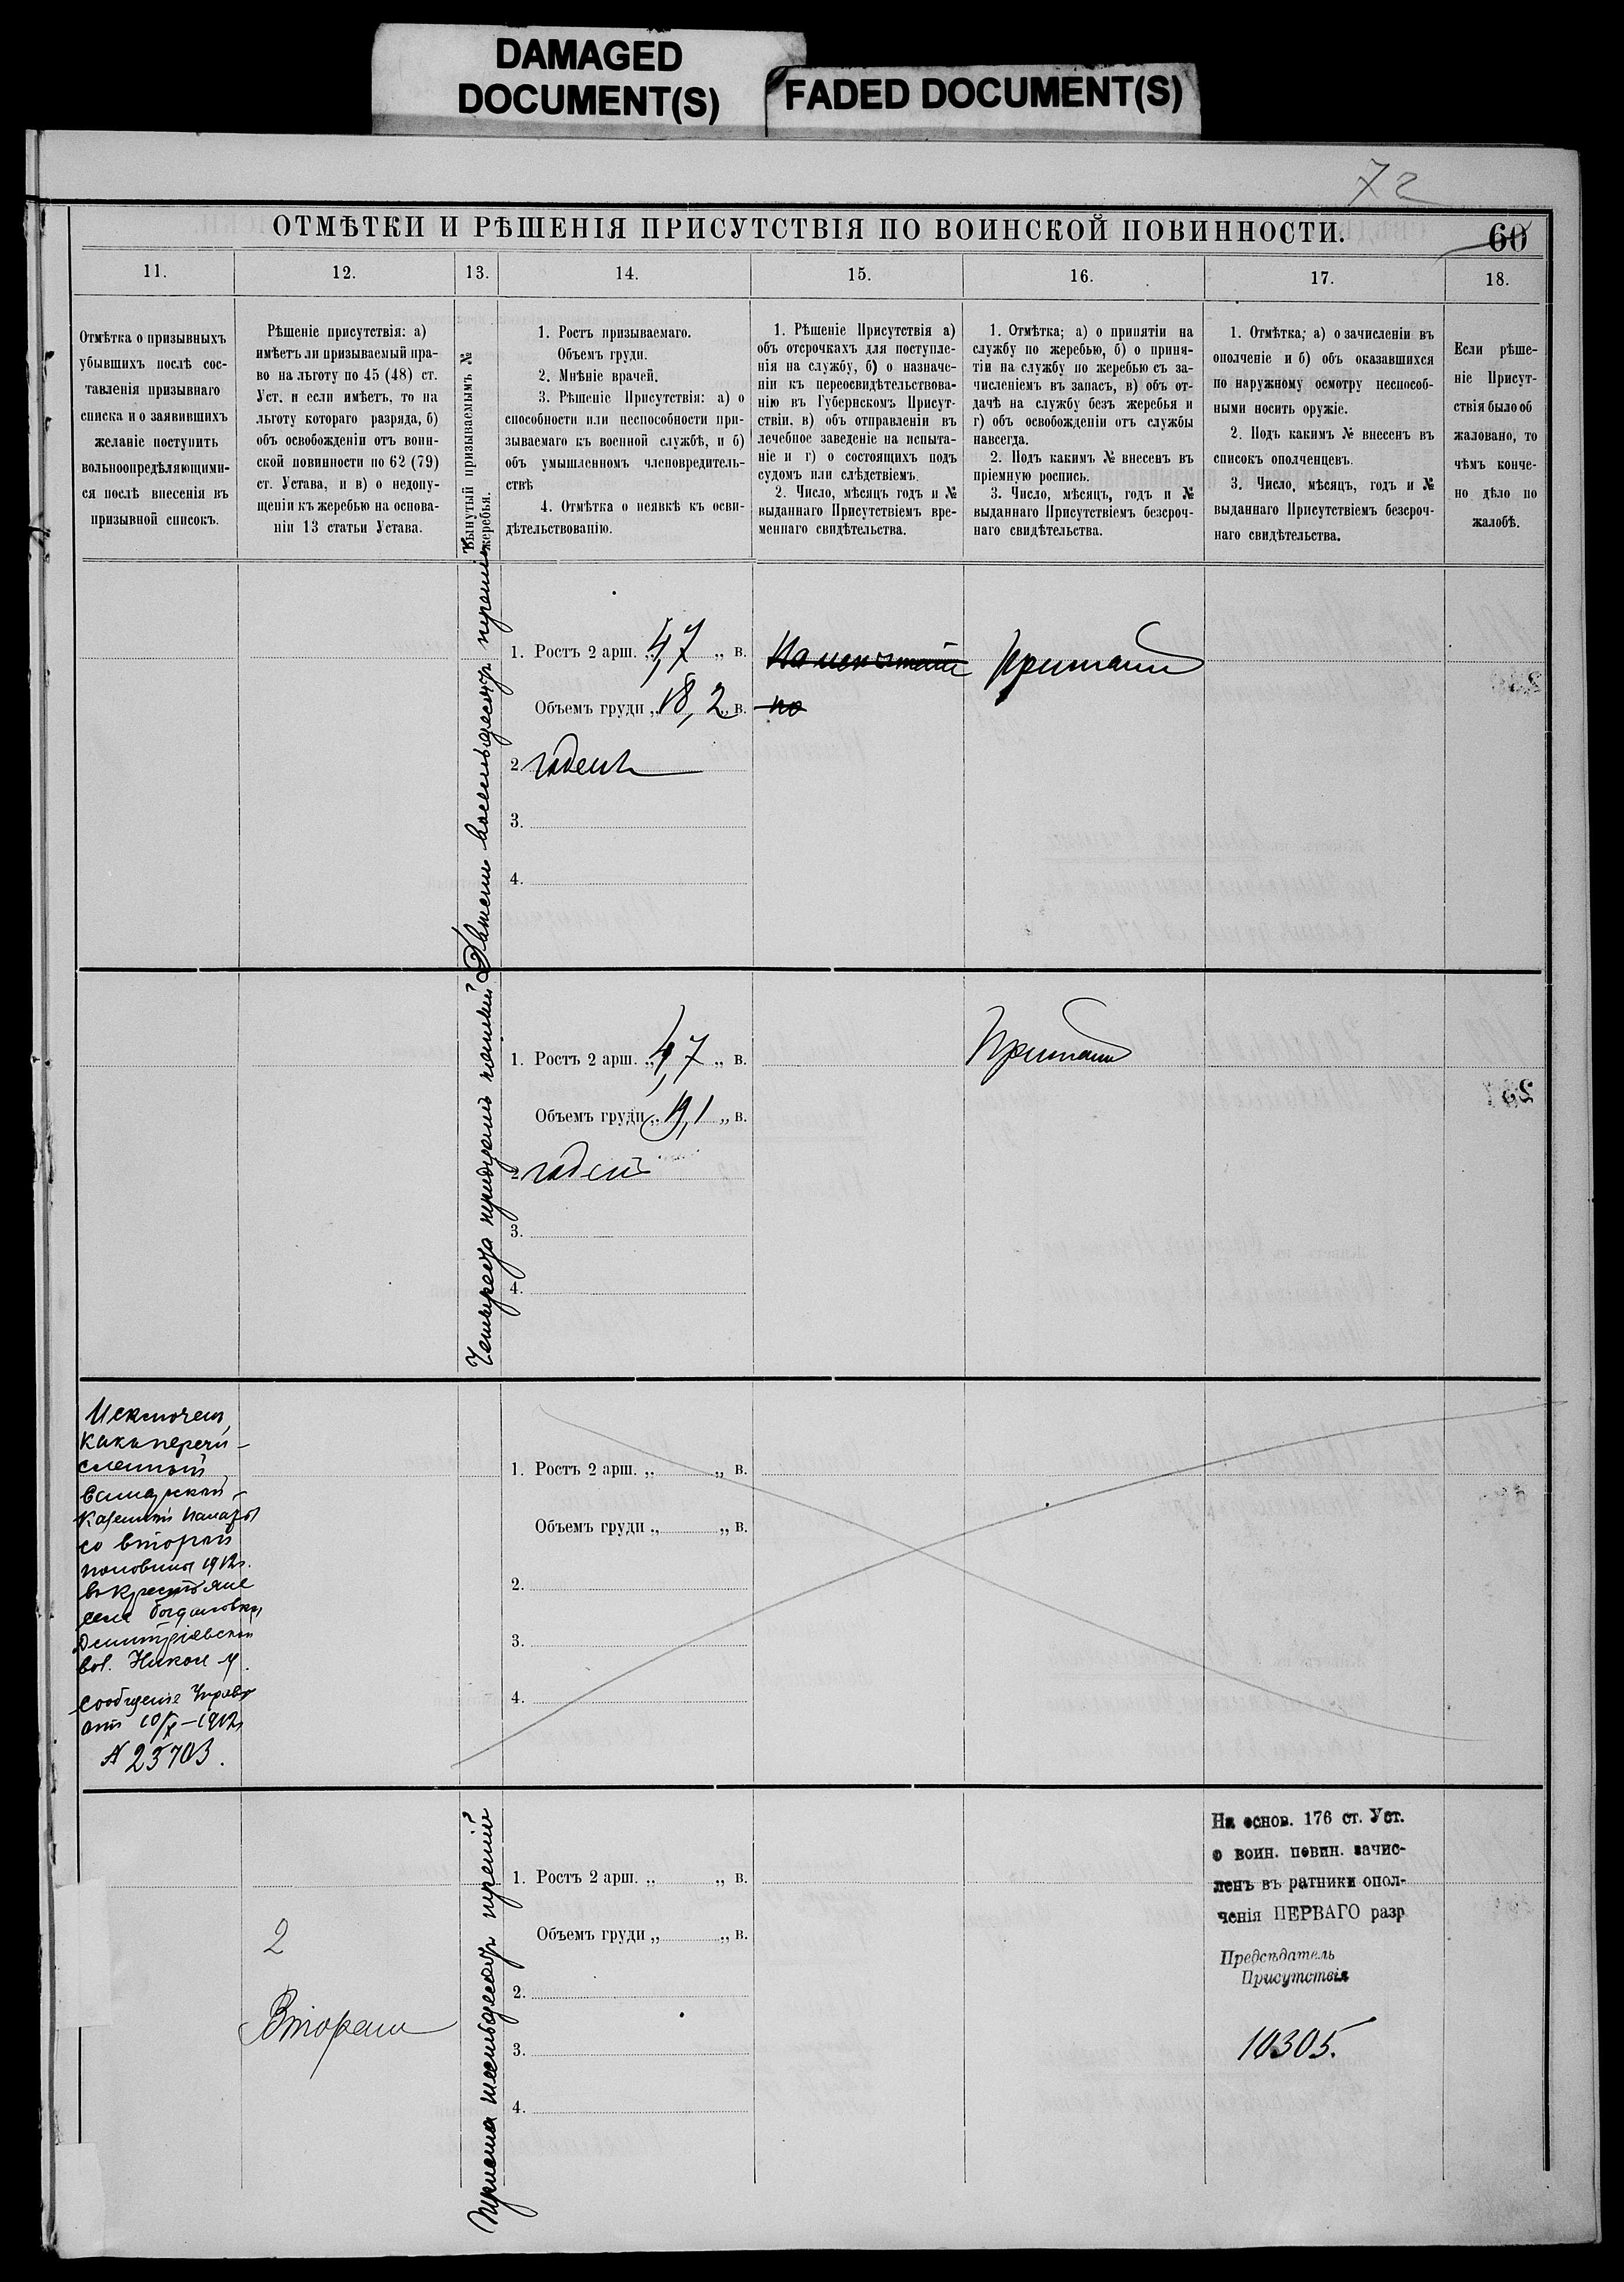 DAMAGED
DOCUMENT(S)
FADED DOCUMENT(S)
72
ОТМѢТКИ И РѢШЕНІЯ ПРИСУТСТВІЯ ПО ВОИНСКОЙ ПОВИННОСТИ.
60
11.
12.
13.
14.
15.
16.
17.
18.
Отмѣтка о призывныхъ
убывшихъ послѣ сос-
тавленія призывнаго
списка и о заявившихъ
желаніе поступить
вольноопредѣляющими-
ся послѣ внесенія въ
призывной списокъ.
Рѣшеніе присутствія: а)
имѣетъ ли призываемый пра-
во на льготу по 45 (48) ст.
Уст. и если имѣетъ, то на
льготу котораго разряда, б)
объ освобожденіи отъ воин-
ской повинности по 62 (79)
ст. Устава, и в) о недопу-
щеніи къ жеребью на основа-
ніи 13 статьи Устава.
Вынутый призываемымъ №
жеребья.
1. Ростъ призываемаго.
Объемъ груди.
2. Мнѣніе врачей.
3. Рѣшеніе Присутствія: а) о
способности или неспособности при-
зываемаго къ военной службѣ, и б)
объ умышленномъ членовредитель-
ствѣ
4. Отмѣтка о неявкѣ къ осви-
дѣтельствованію.
1. Рѣшеніе Присутствія а)
объ отсрочкахъ для поступле-
нія на службу, б) о назначе-
ніи къ переосвидѣтельствова-
нію въ Губернскомъ Присут-
ствіи. в) объ отправленіи въ
лечебное заведеніе на испыта-
ніе и г) о состоящихъ подъ
судомъ или слѣдствіемъ.
2. Число, мѣсяцъ годъ и №
выданнаго Присутствіемъ вре-
меннаго свидѣтельства.
1. Отмѣтка; а) о принятіи на
службу по жеребью, б) о приня-
тіи на службу по жеребью съ за-
численіемъ въ запасъ, в) объ от-
дачѣ на службу безъ жеребья и
г) объ освобожденіи отъ службы
навсегда.
2. Подъ какимъ № внесенъ въ
пріемную роспись.
3. Число, мѣсяцъ, годъ и №
выданнаго Присутствіемъ безсроч-
наго свидѣтельства.
1. Отмѣтка; а) о зачисленіи въ
ополченіе и б) объ оказавшихся
по наружному осмотру неспособ-
ными носить оружіе.
2. Подъ какимъ № внесенъ въ
списокъ ополченцевъ.
3. Число, мѣсяцъ, годъ и №
выданнаго Присутствіемъ безсроч-
наго свидѣтельства.
Если рѣше-
ніе Присут-
ствія было об
жаловано, то
чѣмъ конче-
но дѣло по
жалобѣ.
Двѣсти восемьдесятъ третій
1. Ростъ 2 арш. „ 4,7 „ в.
Объемъ груди „ 18,2 „ в.
2. годенъ
3.
4.
Принятъ
Четыреста тридцать
1. Ростъ 2 арш. „ 4,7 „ в.
Объемъ груди „ 19,1 „ в.
2. годенъ
3.
4.
Принятъ
Исключенъ,
какъ перечи-
сленный
Самарской
Казенной Палаты
со второй
половины 1912 г.
въ крестьяне
села Богдановки
Дмитріевской
вол. Никол. у.
сообщеніе Управы
отъ 10/X-1912
№ 25703.
1. Ростъ 2 арш. „ „ в.
Объемъ груди „ „ в.
2.
3.
4.
2
Вторая
Триста шестьдесятъ третій
1. Ростъ 2 арш. „ „ в.
Объемъ груди „ „ в.
2.
3.
4.
На основ. 176 ст. Уст.
о воин. повин. зачис-
ленъ въ ратники опол-
ченія ПЕРВАГО разр
Предсѣдатель
Присутствія
10305.